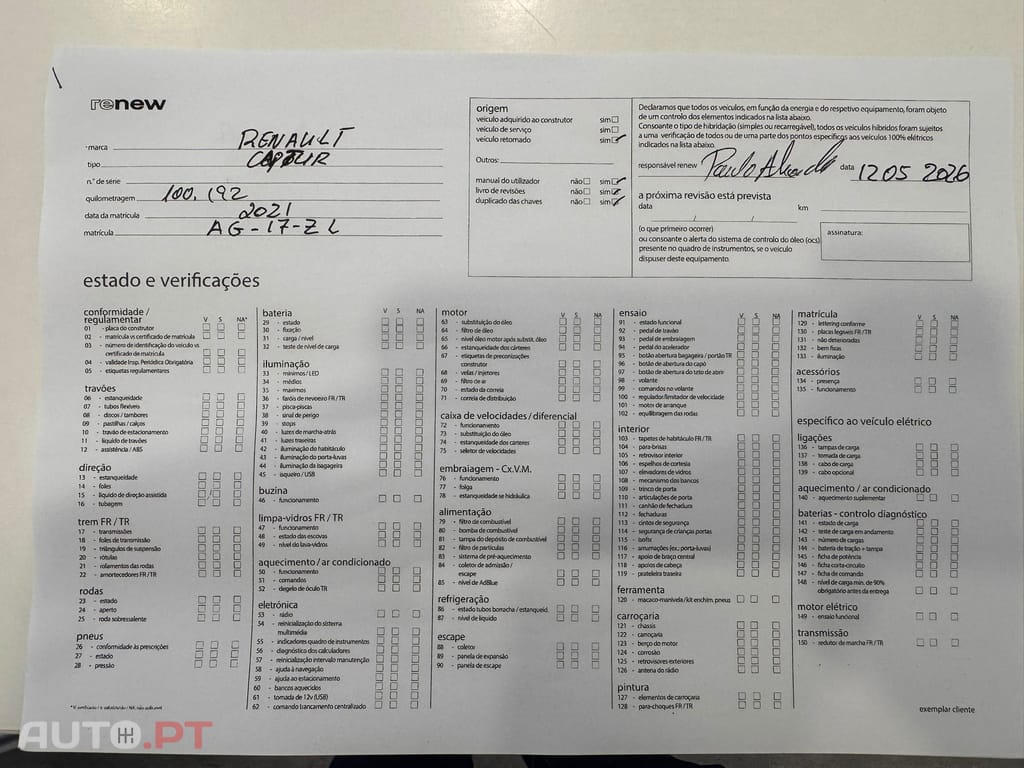 renew
marca RENAULT
tipo CAPTUR
n.º de série
quilometragem 100.192
data da matrícula 2021
matrícula AG-17-ZL
origem
veículo adquirido ao construtor sim
veículo de serviço sim
veículo retomado sim
Outros:
manual do utilizador não sim
livro de revisões não sim
duplicado das chaves não sim
Declaramos que todos os veículos, em função da energia e do respetivo equipamento, foram objeto
de um controlo dos elementos indicados na lista abaixo.
Consoante o tipo de hibridação (simples ou recarregável), todos os veículos híbridos foram sujeitos
a uma verificação de todos ou de uma parte dos pontos específicos aos veículos 100% elétricos
indicados na lista abaixo.
responsável renew Paulo data 12 05 2026
a próxima revisão está prevista
data / / km
(o que primeiro ocorrer)
ou consoante o alerta do sistema de controlo do óleo (ocs)
presente no quadro de instrumentos, se o veículo
dispuser deste equipamento.
assinatura:
estado e verificações
conformidade /
regulamentar V S NA*
01 - placa do construtor
02 - matrícula vs certificado de matrícula
03 - número de identificação do veículo vs
certificado de matrícula
04 - validade Insp. Periódica Obrigatória
05 - etiquetas regulamentares
travões
06 - estanqueidade
07 - tubos flexíveis
08 - discos / tambores
09 - pastilhas / calços
10 - travão de estacionamento
11 - líquido de travões
12 - assistência / ABS
direção
13 - estanqueidade
14 - foles
15 - líquido de direção assistida
16 - tubagem
trem FR / TR
17 - transmissões
18 - foles de transmissão
19 - triângulos de suspensão
20 - rótulas
21 - rolamentos das rodas
22 - amortecedores FR / TR
rodas
23 - estado
24 - aperto
25 - roda sobressalente
pneus
26 - conformidade às prescrições
27 - estado
28 - pressão
bateria V S NA
29 - estado
30 - fixação
31 - carga / nível
32 - teste de nível de carga
iluminação
33 - mínimos / LED
34 - médios
35 - máximos
36 - faróis de nevoeiro FR / TR
37 - pisca-piscas
38 - sinal de perigo
39 - stops
40 - luzes de marcha-atrás
41 - luzes traseiras
42 - iluminação do habitáculo
43 - iluminação do porta-luvas
44 - iluminação da bagageira
45 - isqueiro / USB
buzina
46 - funcionamento
limpa-vidros FR / TR
47 - funcionamento
48 - estado das escovas
49 - nível do lava-vidros
aquecimento / ar condicionado
50 - funcionamento
51 - comandos
52 - degelo de óculo TR
eletrónica
53 - rádio
54 - reinicialização do sistema
multimédia
55 - indicadores quadro de instrumentos
56 - diagnóstico dos calculadores
57 - reinicialização intervalo manutenção
58 - ajuda à navegação
59 - ajuda ao estacionamento
60 - bancos aquecidos
61 - tomada de 12v (USB)
62 - comando trancamento centralizado
motor V S NA
63 - substituição do óleo
64 - filtro de óleo
65 - nível óleo motor após substit. óleo
66 - estanqueidade dos cárteres
67 - etiquetas de preconizações
construtor
68 - velas / injetores
69 - filtro de ar
70 - estado da correia
71 - correia de distribuição
caixa de velocidades / diferencial
72 - funcionamento
73 - substituição do óleo
74 - estanqueidade dos cárteres
75 - seletor de velocidades
embraiagem - Cx.V.M.
76 - funcionamento
77 - folga
78 - estanqueidade se hidráulica
alimentação
79 - filtro de combustível
80 - bomba de combustível
81 - tampa do depósito de combustível
82 - filtro de partículas
83 - sistema de pré-aquecimento
84 - coletor de admissão /
escape
85 - nível de AdBlue
refrigeração
86 - estado tubos borracha / estanqueid.
87 - nível de líquido
escape
88 - coletor
89 - panela de expansão
90 - panela de escape
ensaio V S NA
91 - estado funcional
92 - pedal de travão
93 - pedal de embraiagem
94 - pedal do acelerador
95 - botão abertura bagageira / portão TR
96 - botão de abertura do capô
97 - botão de abertura do teto de abrir
98 - volante
99 - comandos no volante
100 - regulador/limitador de velocidade
101 - motor de arranque
102 - equilibragem das rodas
interior
103 - tapetes de habitáculo FR / TR
104 - para-brisas
105 - retrovisor interior
106 - espelhos de cortesia
107 - elevadores de vidros
108 - mecanismo dos bancos
109 - trinco de porta
110 - articulações de porta
111 - canhão de fechadura
112 - fechaduras
113 - cintos de segurança
114 - segurança de crianças portas
115 - isofix
116 - arrumações (ex.: porta-luvas)
117 - apoio de braço central
118 - apoios de cabeça
119 - prateleira traseira
ferramenta
120 - macaco-manivela / kit enchim. pneus
carroçaria
121 - chassis
122 - carroçaria
123 - berço do motor
124 - corrosão
125 - retrovisores exteriores
126 - antena do rádio
pintura
127 - elementos de carroçaria
128 - para-choques FR / TR
matrícula V S NA
129 - lettering conforme
130 - placas legíveis FR / TR
131 - não deterioradas
132 - bem fixas
133 - iluminação
acessórios
134 - presença
135 - funcionamento
específico ao veículo elétrico
ligações
136 - tampas de carga
137 - tomada de carga
138 - cabo de carga
139 - cabo opcional
aquecimento / ar condicionado
140 - aquecimento suplementar
baterias - controlo diagnóstico
141 - estado de carga
142 - teste de carga em andamento
143 - número de cargas
144 - bateria de tração + tampa
145 - ficha de potência
146 - ficha corta-circuito
147 - ficha de comando
148 - nível de carga mín. de 90%
obrigatório antes da entrega
motor elétrico
149 - ensaio funcional
transmissão
150 - redutor de marcha FR / TR
*V, verificado / S, substituído / NA, não aplicável
exemplar cliente
AUTO.PT